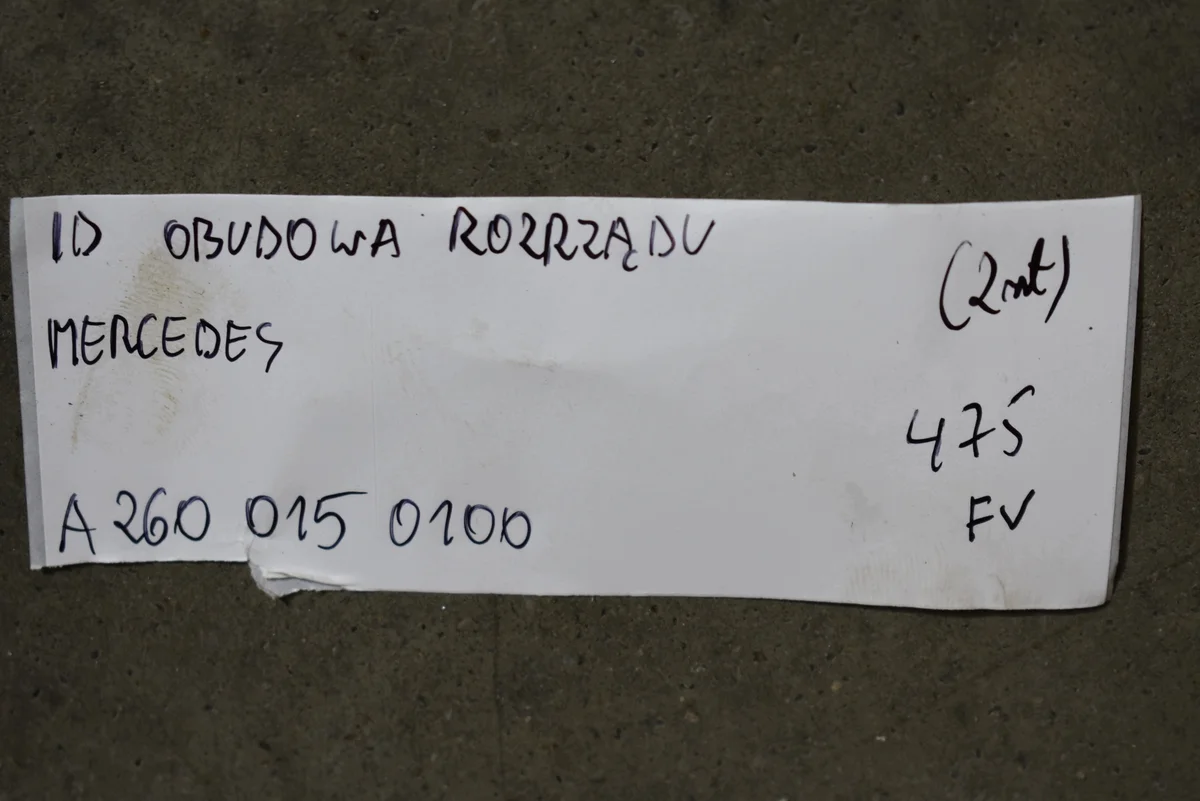 ID OBUDOWA ROZRZĄDU
(2szt)
MERCEDES
475
A 260 015 0100
FV